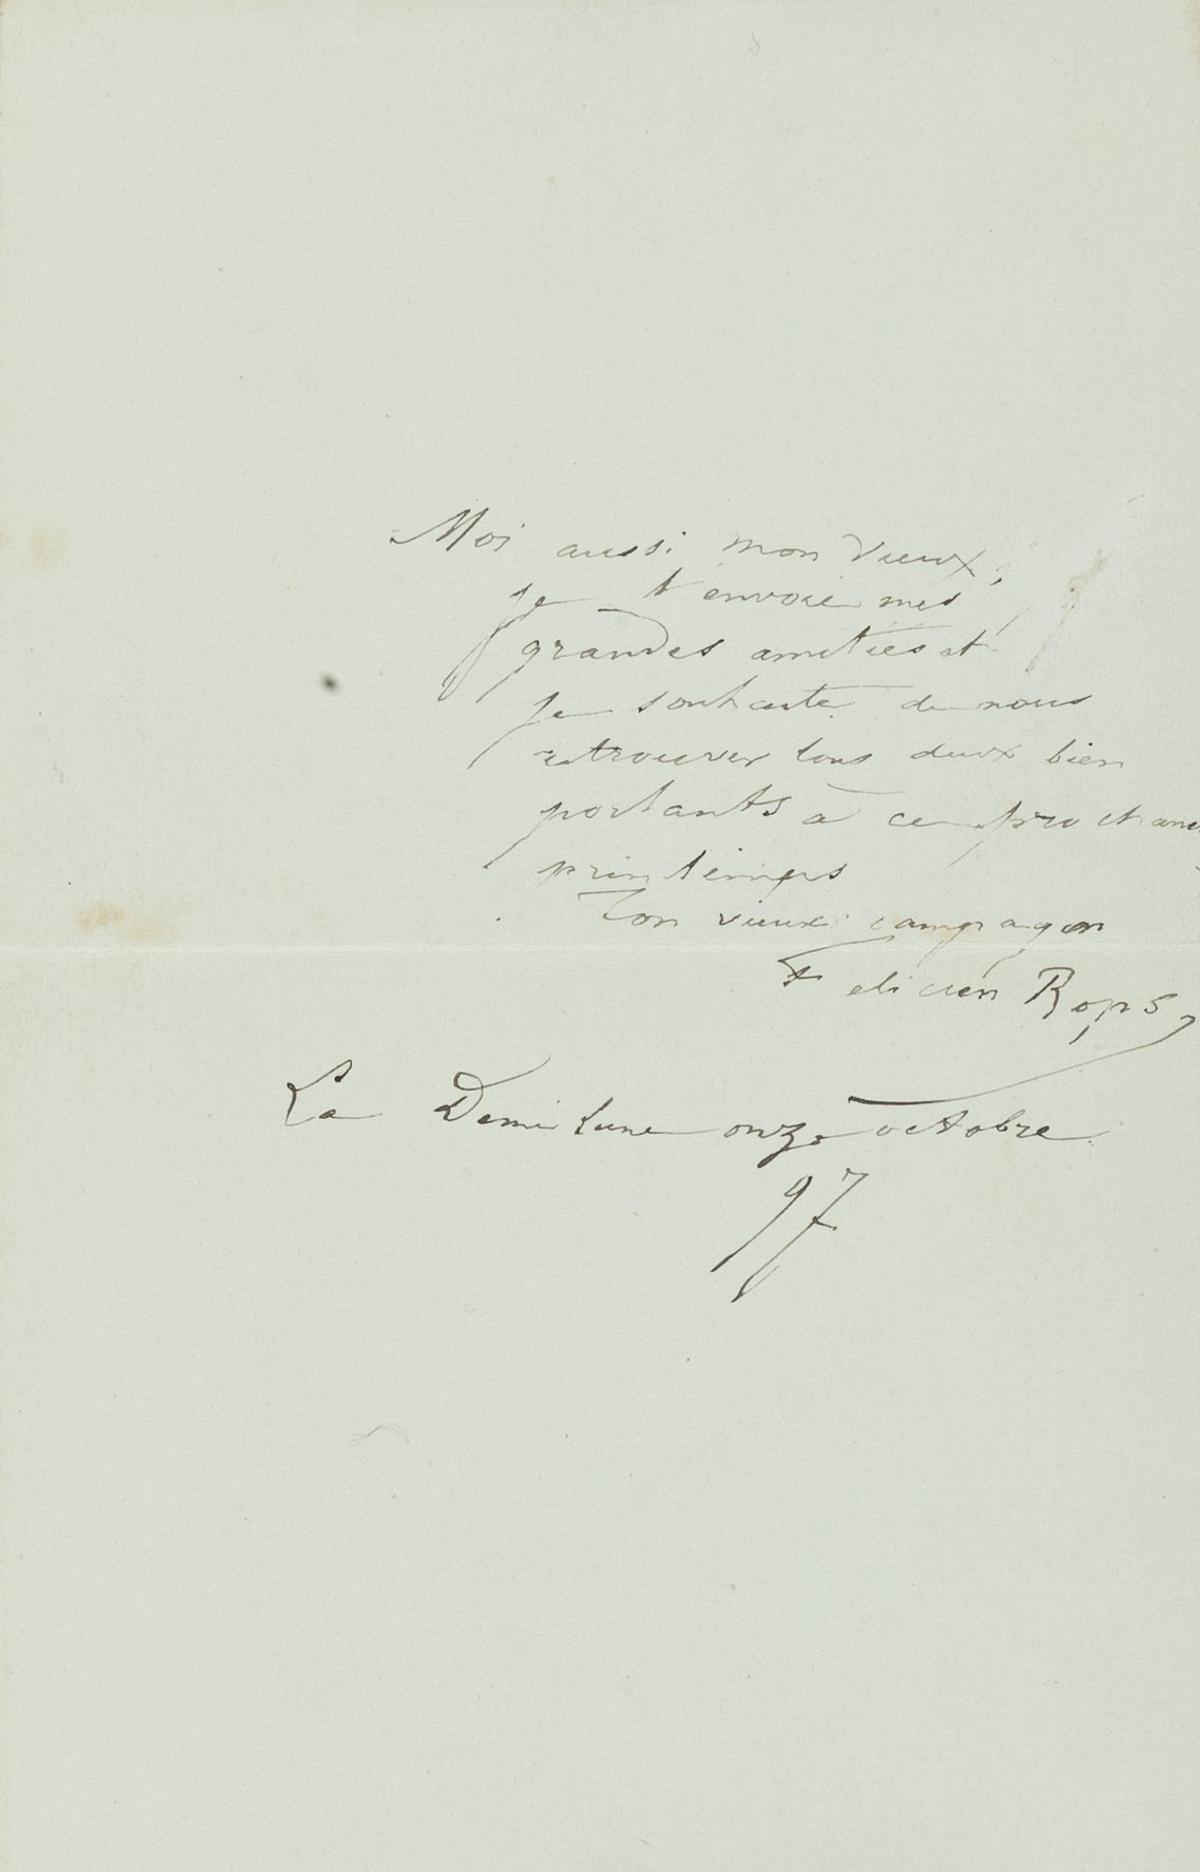 Moi aussi mon vieux,
je t'envoie mes
grandes amitiés et
je souhaite de nous
retrouver tous deux bien
portants à ce prochain
printemps
Ton vieux compagnon
Felicien Rops
La Demi Lune onze octobre
97